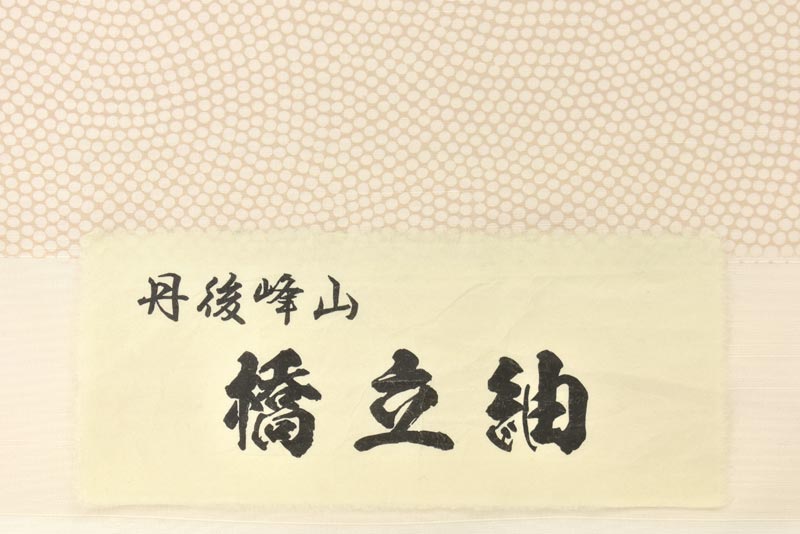 丹後峰山
橋立紬